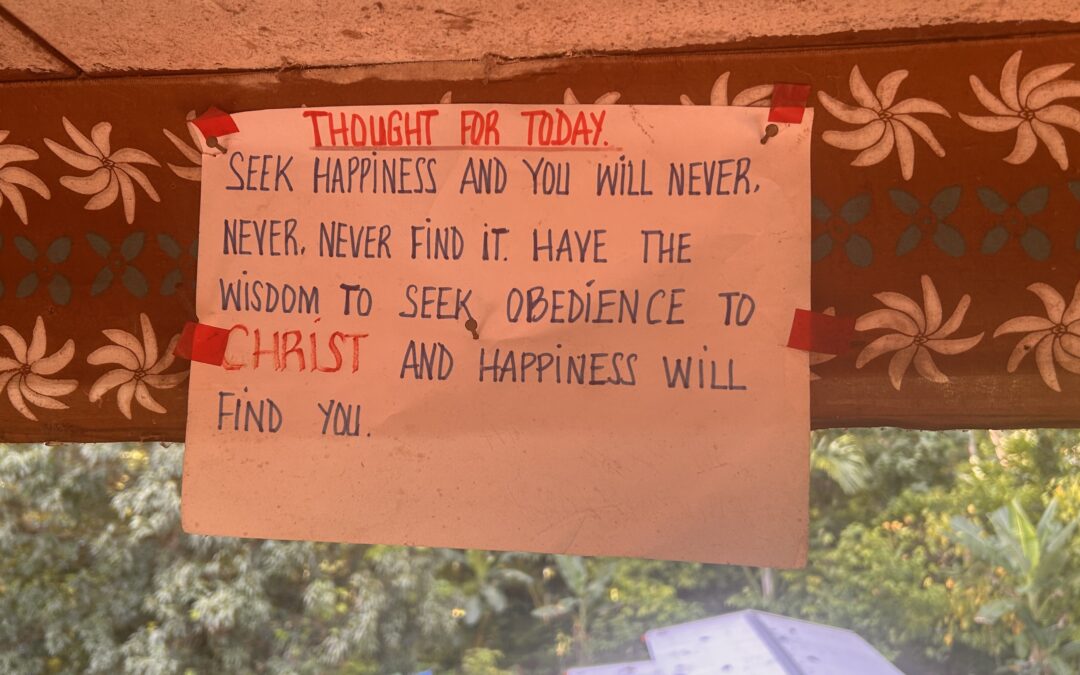 THOUGHT FOR TODAY.
SEEK HAPPINESS AND YOU WILL NEVER,
NEVER, NEVER FIND IT. HAVE THE
WISDOM TO SEEK OBEDIENCE TO
CHRIST AND HAPPINESS WILL
FIND YOU.